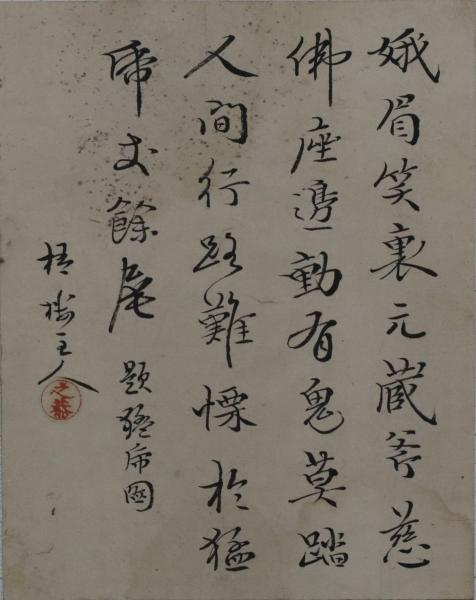 娥眉笑裏元藏斧慈
佛座邊動有鬼莫踏
人間行路難慄於猛
乕丈餘尾 題猛乕圖
梧 主人